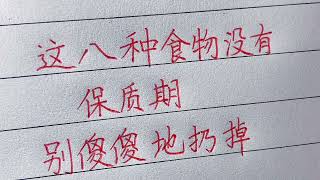 这八种食物没有
保质期
别傻傻地扔掉